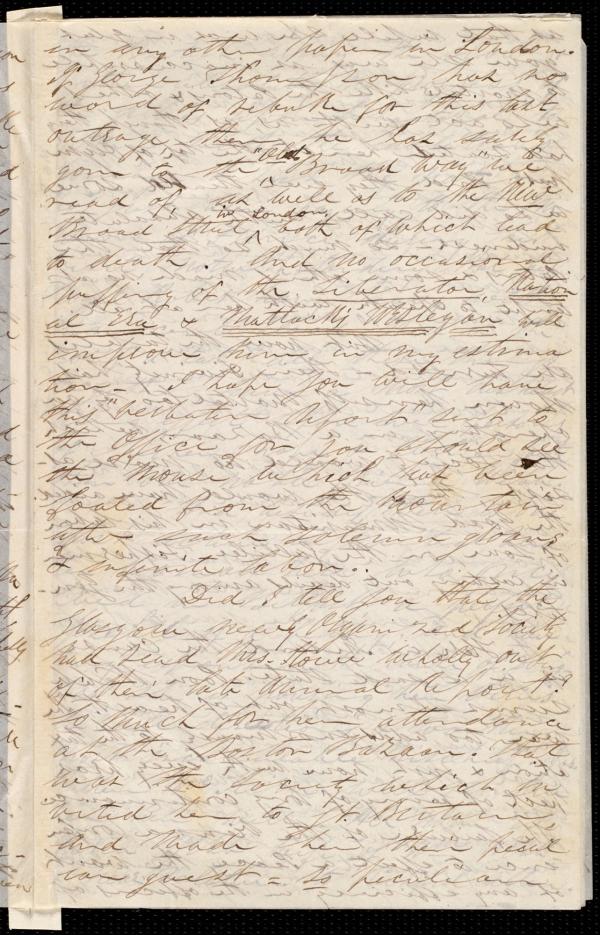 in any other paper in London.
If George Thompson has no
word of rebuke for this last
outrage, then he has surely
gone to the "Old Broad Way" we
read of, as well as to the New
Broad Street in London, both of which lead
to death. And no occasional
puffing of the Liberator, Nation
al Era & Matlack's Wesleyan will
improve him in my estima
tion - I hope you will have
this "verbatim Report" sent to
the Office for you should see
the Mouse which has been
from the Mountain
after such solemn groans
& infinite labor..
Did I tell you that the
Glasgow newly Organized Society
had read Mrs. Stowe wholly out
of their late Annual Report?
So much for her attendance
at the Boston Bazaar. That
was the Society which in
vited her to Gt. Britain,
and made her their pecul
iar guest - so peculiar